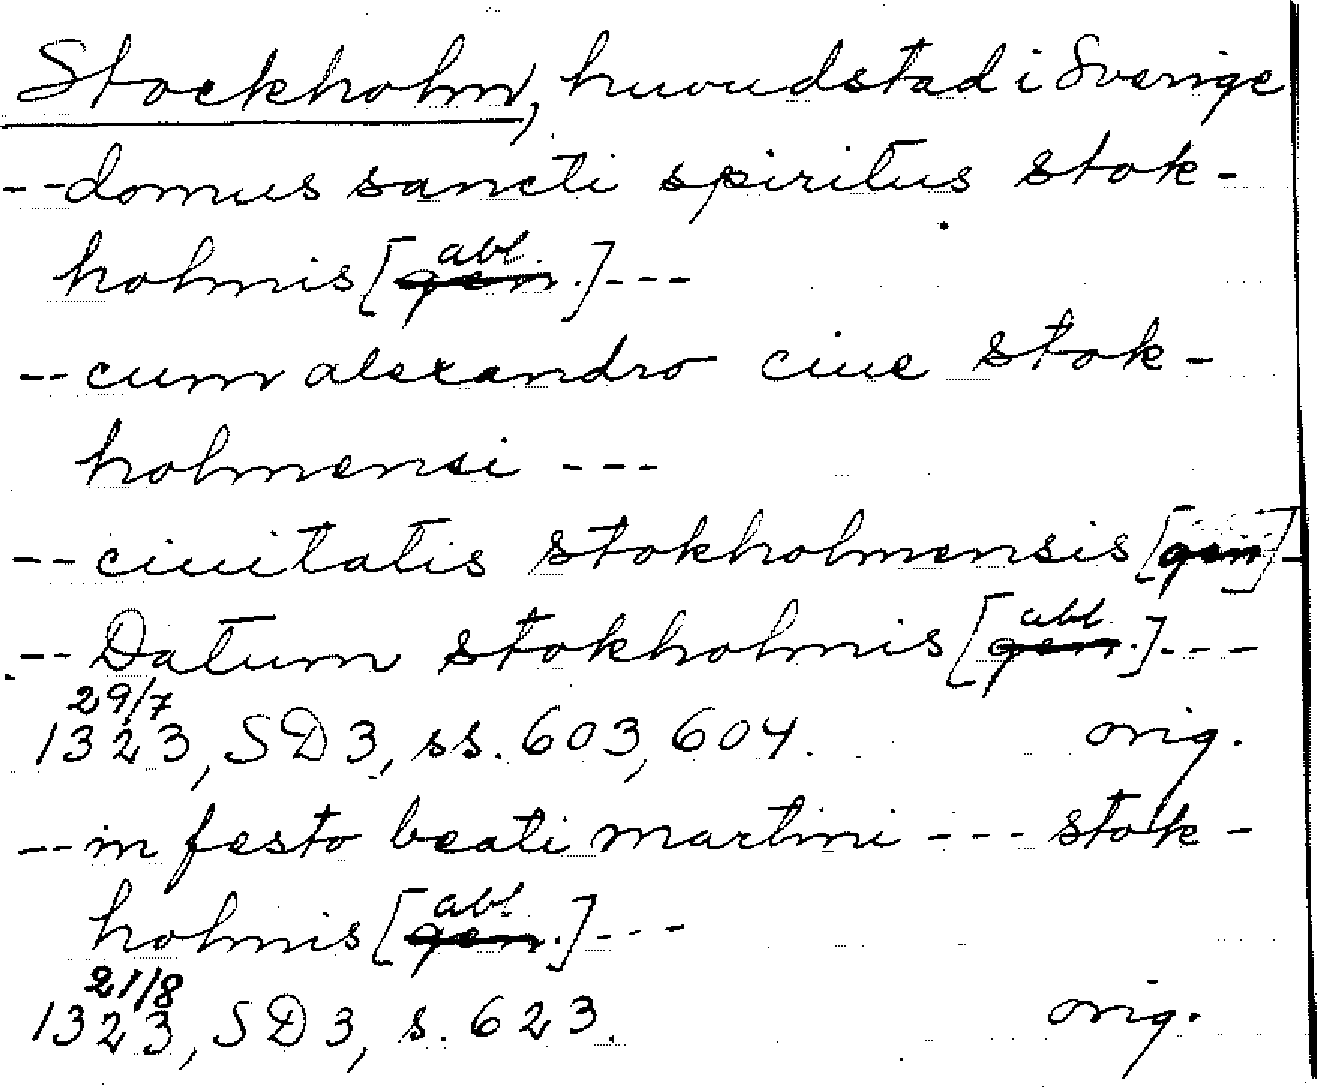 Stockholm, huvudstad i Sverige
--domus sancti spiritus stok-
holmis [abl.]---
--cum alexandro ciue stok-
holmensi ---
--ciuitatis stokholmensis [gen]-
--Datum stokholmis [abl.]---
29/7
1323, SD3, ss. 603, 604. orig.
--in festo beati martini --- stok-
holmis [abl.]---
21/8
1323, SD3, s. 623. orig.